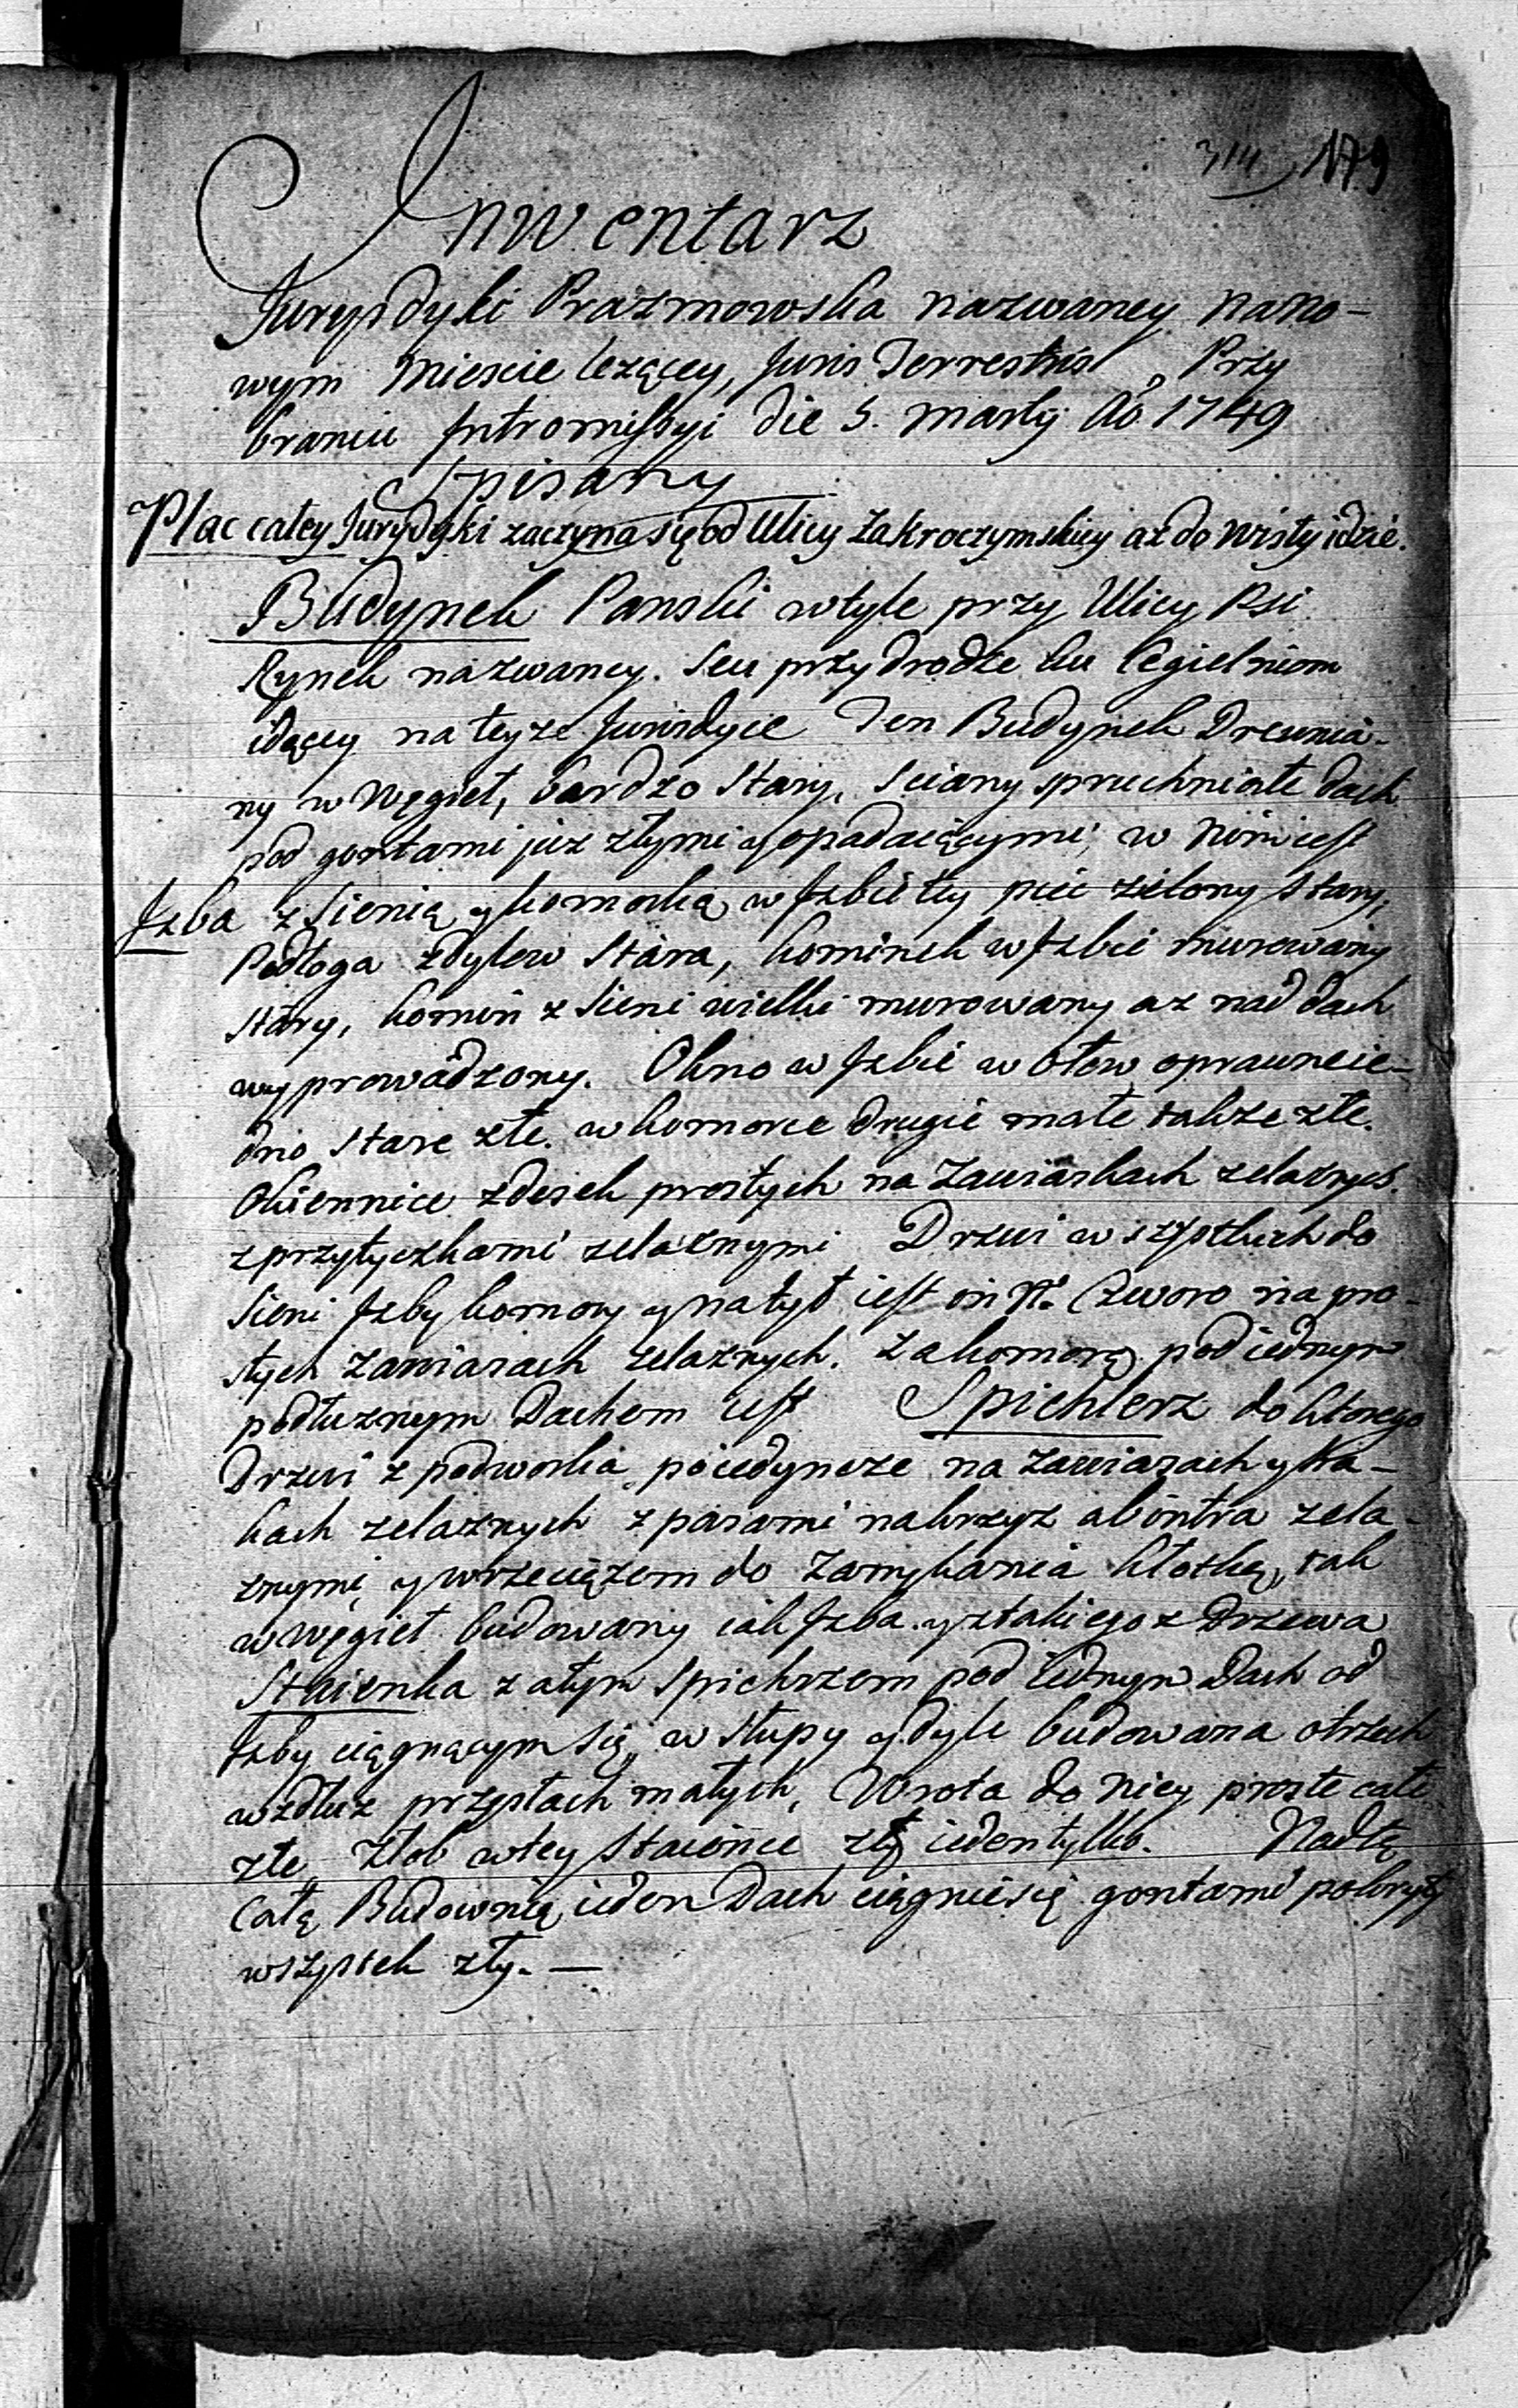 314 179
Inwentarz
Jurysdyki Prazmowska nazwaney na No-
wym Miescie lezącey, Juris Terrestris, Przy
braniu Intromissyi die 5. Martij Ao 1749
spisany
Plac całey Jurydyki zaczyna się od Ulicy Zakroczymskiey az do Wisły idzie.
Budynek Panski w tyle przy Ulicy Psi
Rynek nazwaney. seu przy drodze ku Cegielniom
idącey na teyze Juridyce Ten Budynek Drewnia-
ny w Węgieł, bardzo stary, sciany spruchniałe dach
pod gontami juz złymi y opadaiącymi, w nim iest
Izba z sienią y komorką w Izbie tey piec zielony stary,
Podłoga z dylow stara, kominek w Izbie murowany
stary, komin z sieni wielki murowany az nad dach
wyprowadzony. Okno w Izbie w ołow oprawne ie-
dno stare złe. w komorce drugie małe takze złe.
Okiennice z desek prostych na zawiaskach zelaznych.
z przytyczkami zelaznymi Drzwi wszystkich do
sieni Izby komory y na tył iest in No Czworo na pro-
stych zawiasach zelaznych. Za komorą pod iednym
podłuznym Dachem iest Spichlerz do ktorego
Drzwi z podworka poiedyncze na zawiasach y ha-
kach zelaznych z pasami na krzyz ab intra zela-
znymi y wrzeciązem do zamykania kłotką, tak
w węgieł budowany iak Izba. y z takiegoz Drzewa
Staienka za tym Spichrzem pod iednym Dach od
Izby ciągnącym się, w słupy y dyle budowana o trzech
wzdłuz przęsłach małych, Wrota do niey proste całe
złe, złob w tey staience zły ieden tylko. Nad tą
całą Budownią ieden Dach ciągnie się gontami pokryty
wszystek zły. —